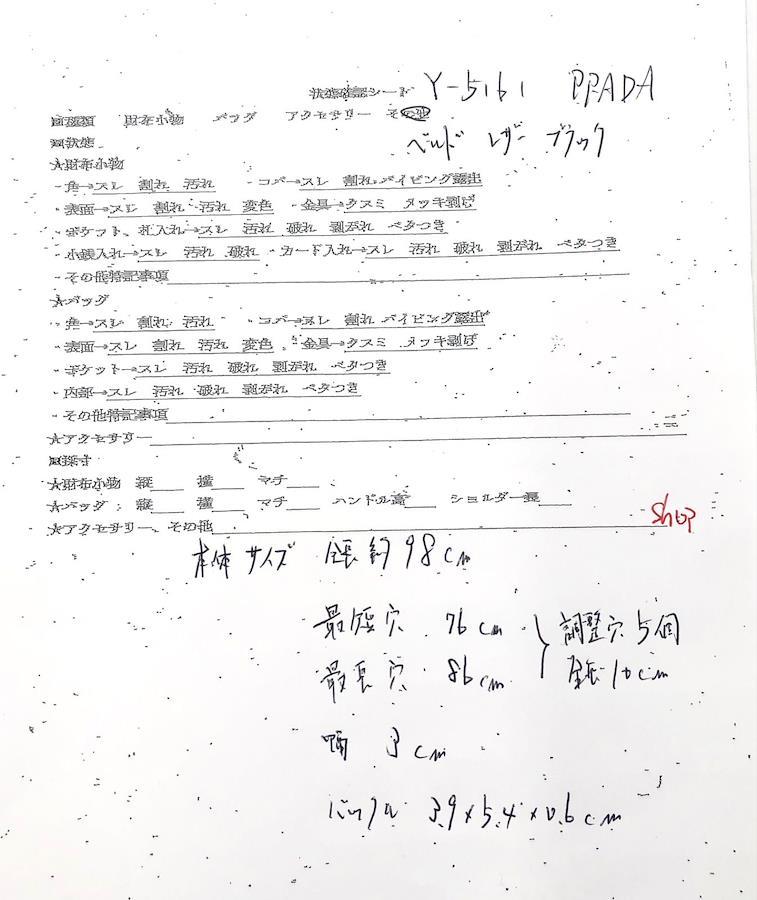 状態確認シート Y-5161 PRADA
■種類 財布小物 バッグ アクセサリー その他
■状態 ベルト レザー ブラック
★財布小物
・角→スレ 割れ 汚れ ・コバ→スレ 割れ パイピング露出
・表面→スレ 割れ 汚れ 変色 ・金具→クスミ メッキ剥げ
・ポケット、札入れ→スレ 汚れ 破れ 剥がれ ベタつき
・小銭入れ→スレ 汚れ 破れ ・カード入れ→スレ 汚れ 破れ 剥がれ ベタつき
・その他特記事項
★バッグ
・角→スレ 割れ 汚れ ・コバ→スレ 割れ パイピング露出
・表面→スレ 割れ 汚れ 変色 ・金具→クスミ メッキ剥げ
・ポケット→スレ 汚れ 破れ 剥がれ ベタつき
・内部→スレ 汚れ 破れ 剥がれ ベタつき
・その他特記事項
★アクセサリー
■採寸
★財布小物 縦 横 マチ
★バッグ 縦 横 マチ ハンドル高 ショルダー長
★アクセサリー、その他 shop
本体サイズ 全長約98cm
最短穴 76cm 調整穴5個
最長穴 86cm 全長10cm
幅 3cm
バックル 3.9×5.4×0.6cm